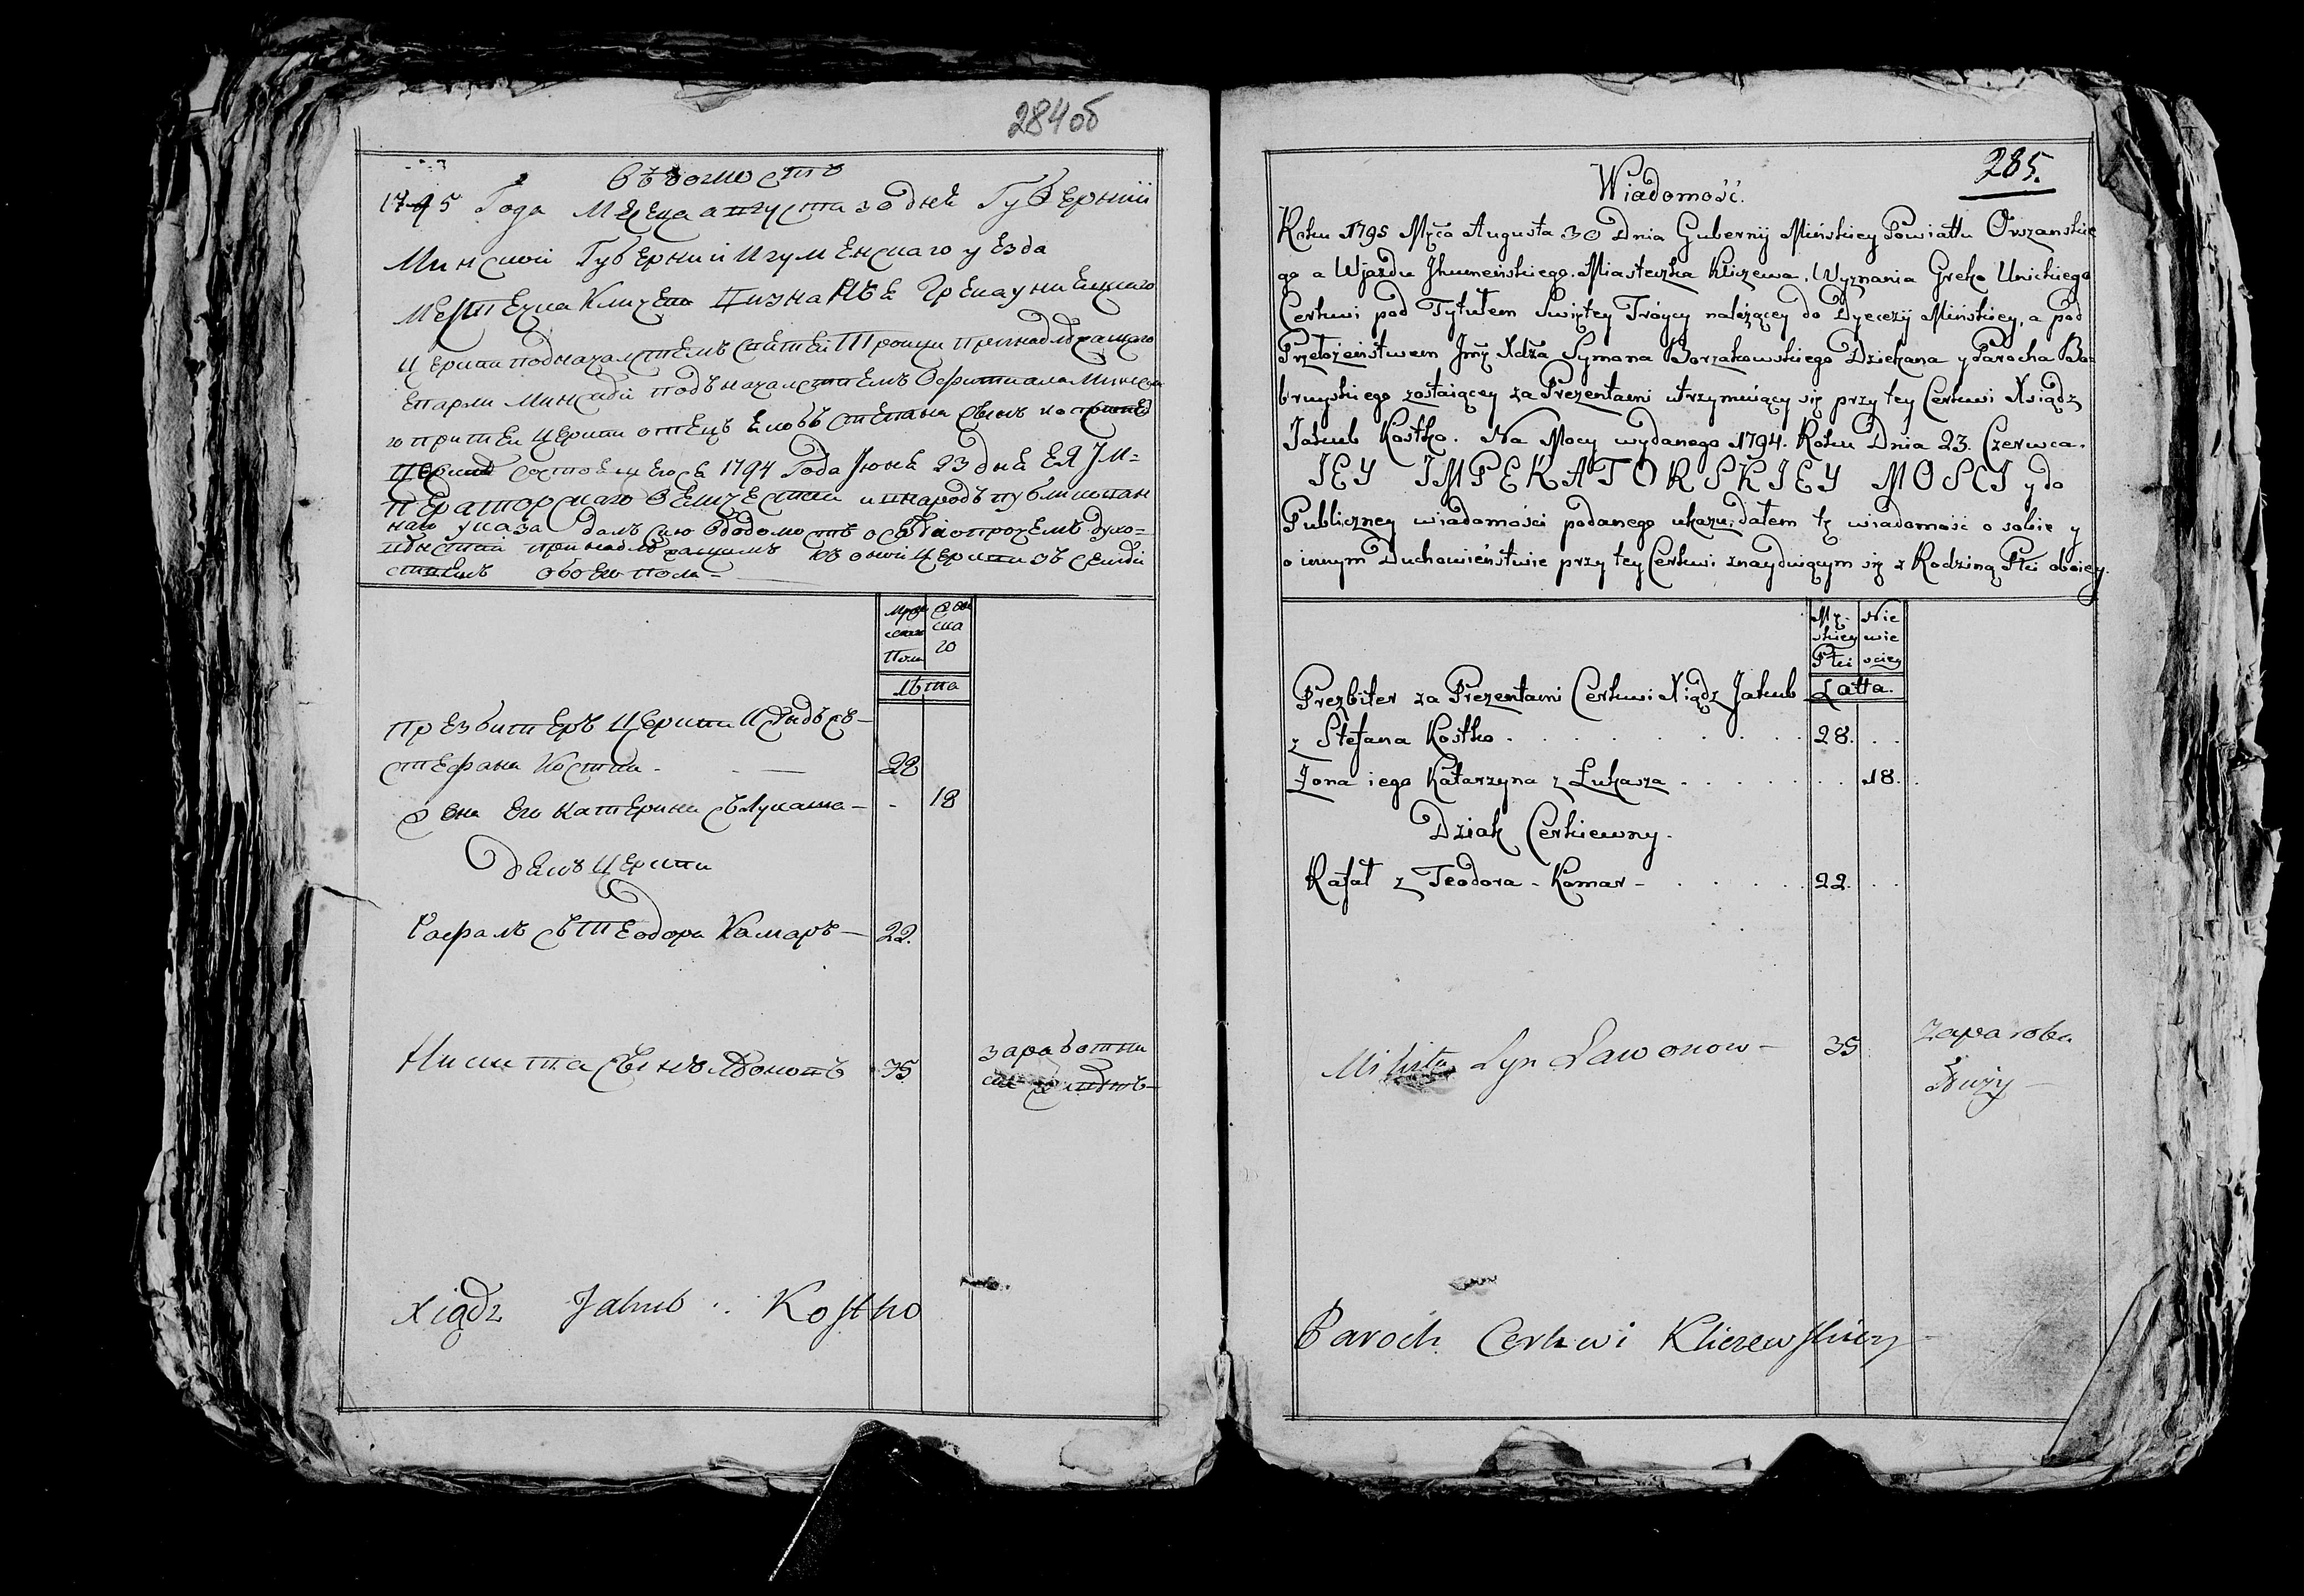 284об
вѣдомость
1795 Года Месеца августа 30 дня Губернии
Минской Губернии Игуменского уезда
Местечка Кличева визнанья Грекауниецкого
Церкви под началством Светей Тройци принадлежащого
Епархи Минской подъ началством Офитиала Минского
при тей Церкви отец Еков Степана сын
1794 Года Июня 23 дня ЕЯ ІМ=
ператорскаго Величества и внародъ публикован
наго указа далъ сию Вѣдомость о себѣ и о протчемъ духо=
венстве принадлежащимъ къ оной Церкви зъ семей
ствомъ обоего пола =
Муж
ска
Пола
Жен
ска
го
Лѣта
Презвитеръ Церкви
Стефана Костка - 28
Жена Его Катерина съ Лукаша - 18
Дьякъ Церкви
Рафалъ съ Теодора Камаръ - 22.
Никита Сынъ Лавоновъ 35
заработни
Xiądz Jakub Kostko
285.
Wiadomość.
Roku 1795 Mscá Augusta 30 Dnia Gubernij Mińskiey Powiattu Orszanskie
go a Wjazdu Jhumeńskiego. Miasteczka Kliczewa, Wyznania Greko Unickiego
Cerkwi pod Tytułem Swiętey Tróycy należącey do Dyecezij Mińskiey, a pod
Przełożeństwem Jmsc Xdza Symona Borzakowskiego Dziekana y Parocha Bo=
bruyskiego zostaiącey za Prezentami utrzymuiący się przy tey Cerkwi Xsiądz
Jakub Kostko. Na Mocy wydanego 1794. Roku Dnia 23. Czerwca.
IEY IMPERATORSKIEY MOSCI y do
Publiczney wiadomości podanego ukazu, dałem tę wiadomość o sobie y
o innym Duchowieństwie przy tey Cerkwi znayduiącym się z Rodziną Płci oboiey.
Mę-
skiey
Płci
Nie
wie
sciey
Latta.
Prezbiter za Prezentami Cerkwi Xiądz Jakub
z Stefana Kostko . 28. . .
Żona iego Katarzyna z Łukasza . . 18.
Dziak Cerkiewny.
Rafał z Teodora - Komar - 22. . .
Mikita Syn Ławonow - 35 Zararobku
Służy -
Paroch Cerkwi Kliczewskiey